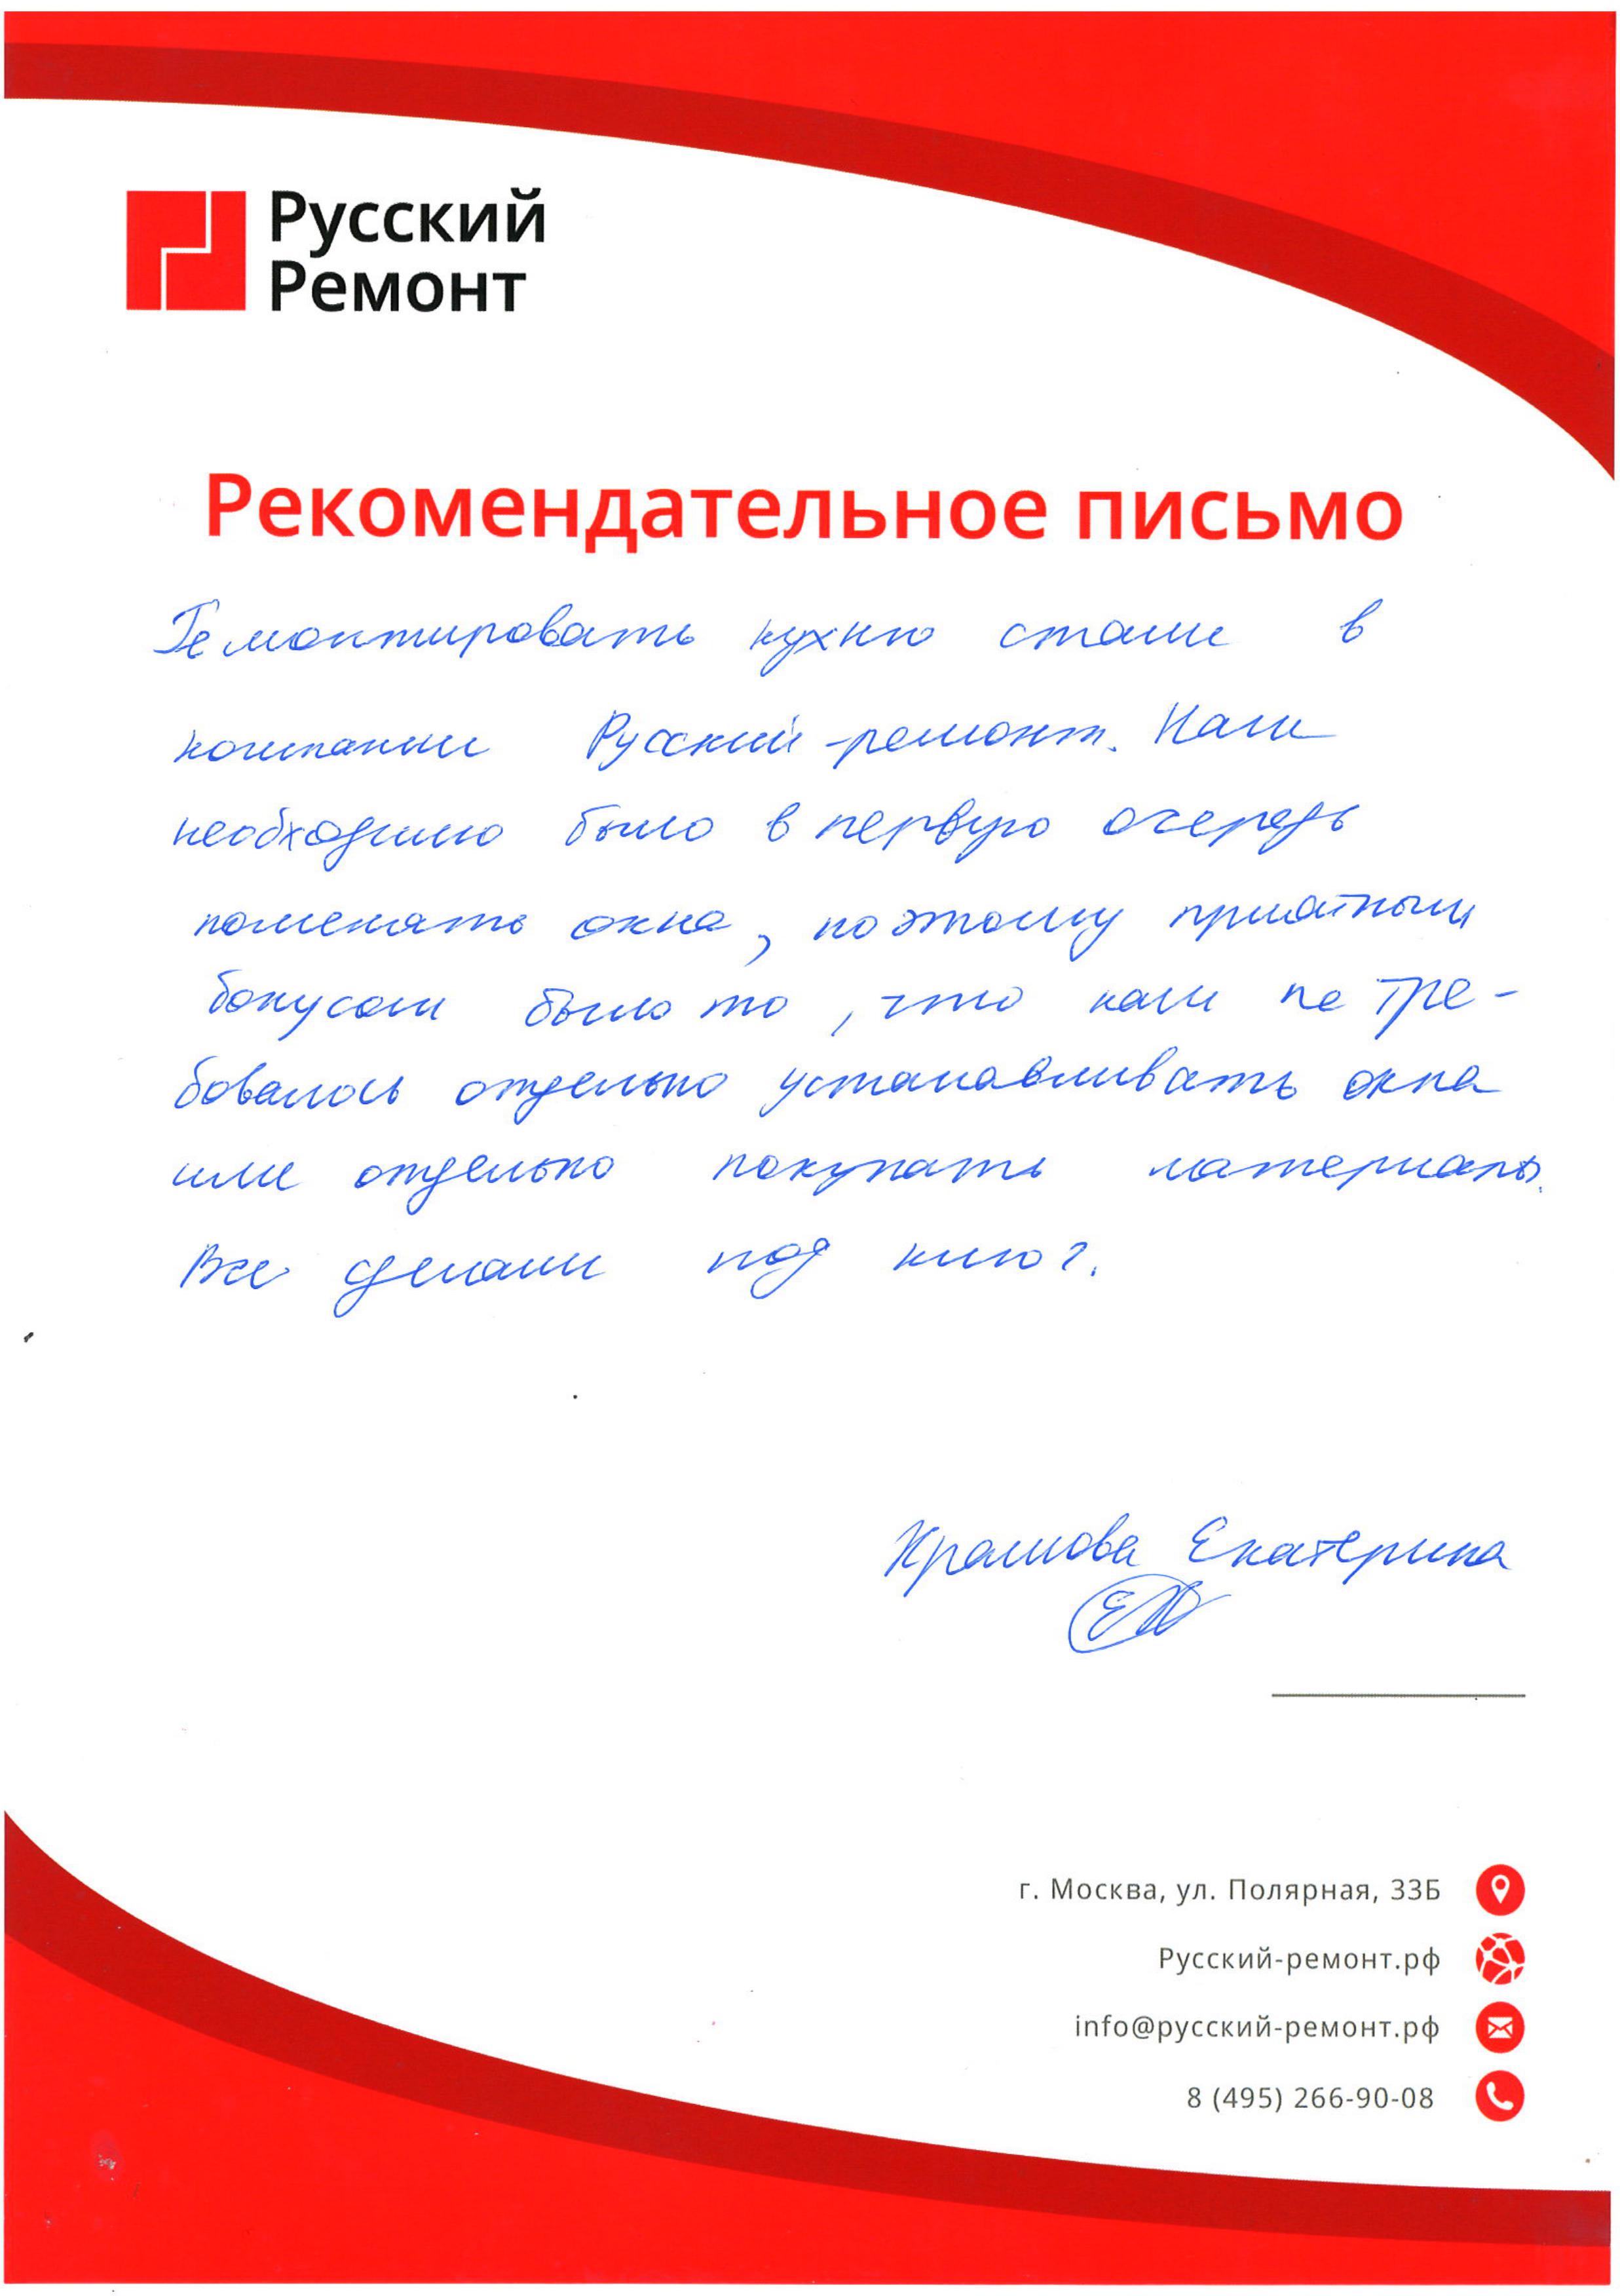 Русский
Ремонт
Рекомендательное письмо
Ремонтировать кухню стали в
компании Русский-ремонт. Нам
необходимо было в первую очередь
поменять окна, поэтому приятным
бонусом было то, что нам не тре-
бовалось отдельно устанавливать окна
или отдельно покупать материалы.
Все сделали под ключ.
Екатерина
г. Москва, ул. Полярная, 33Б
Русский-ремонт.рф
info@русский-ремонт.рф
8 (495) 266-90-08